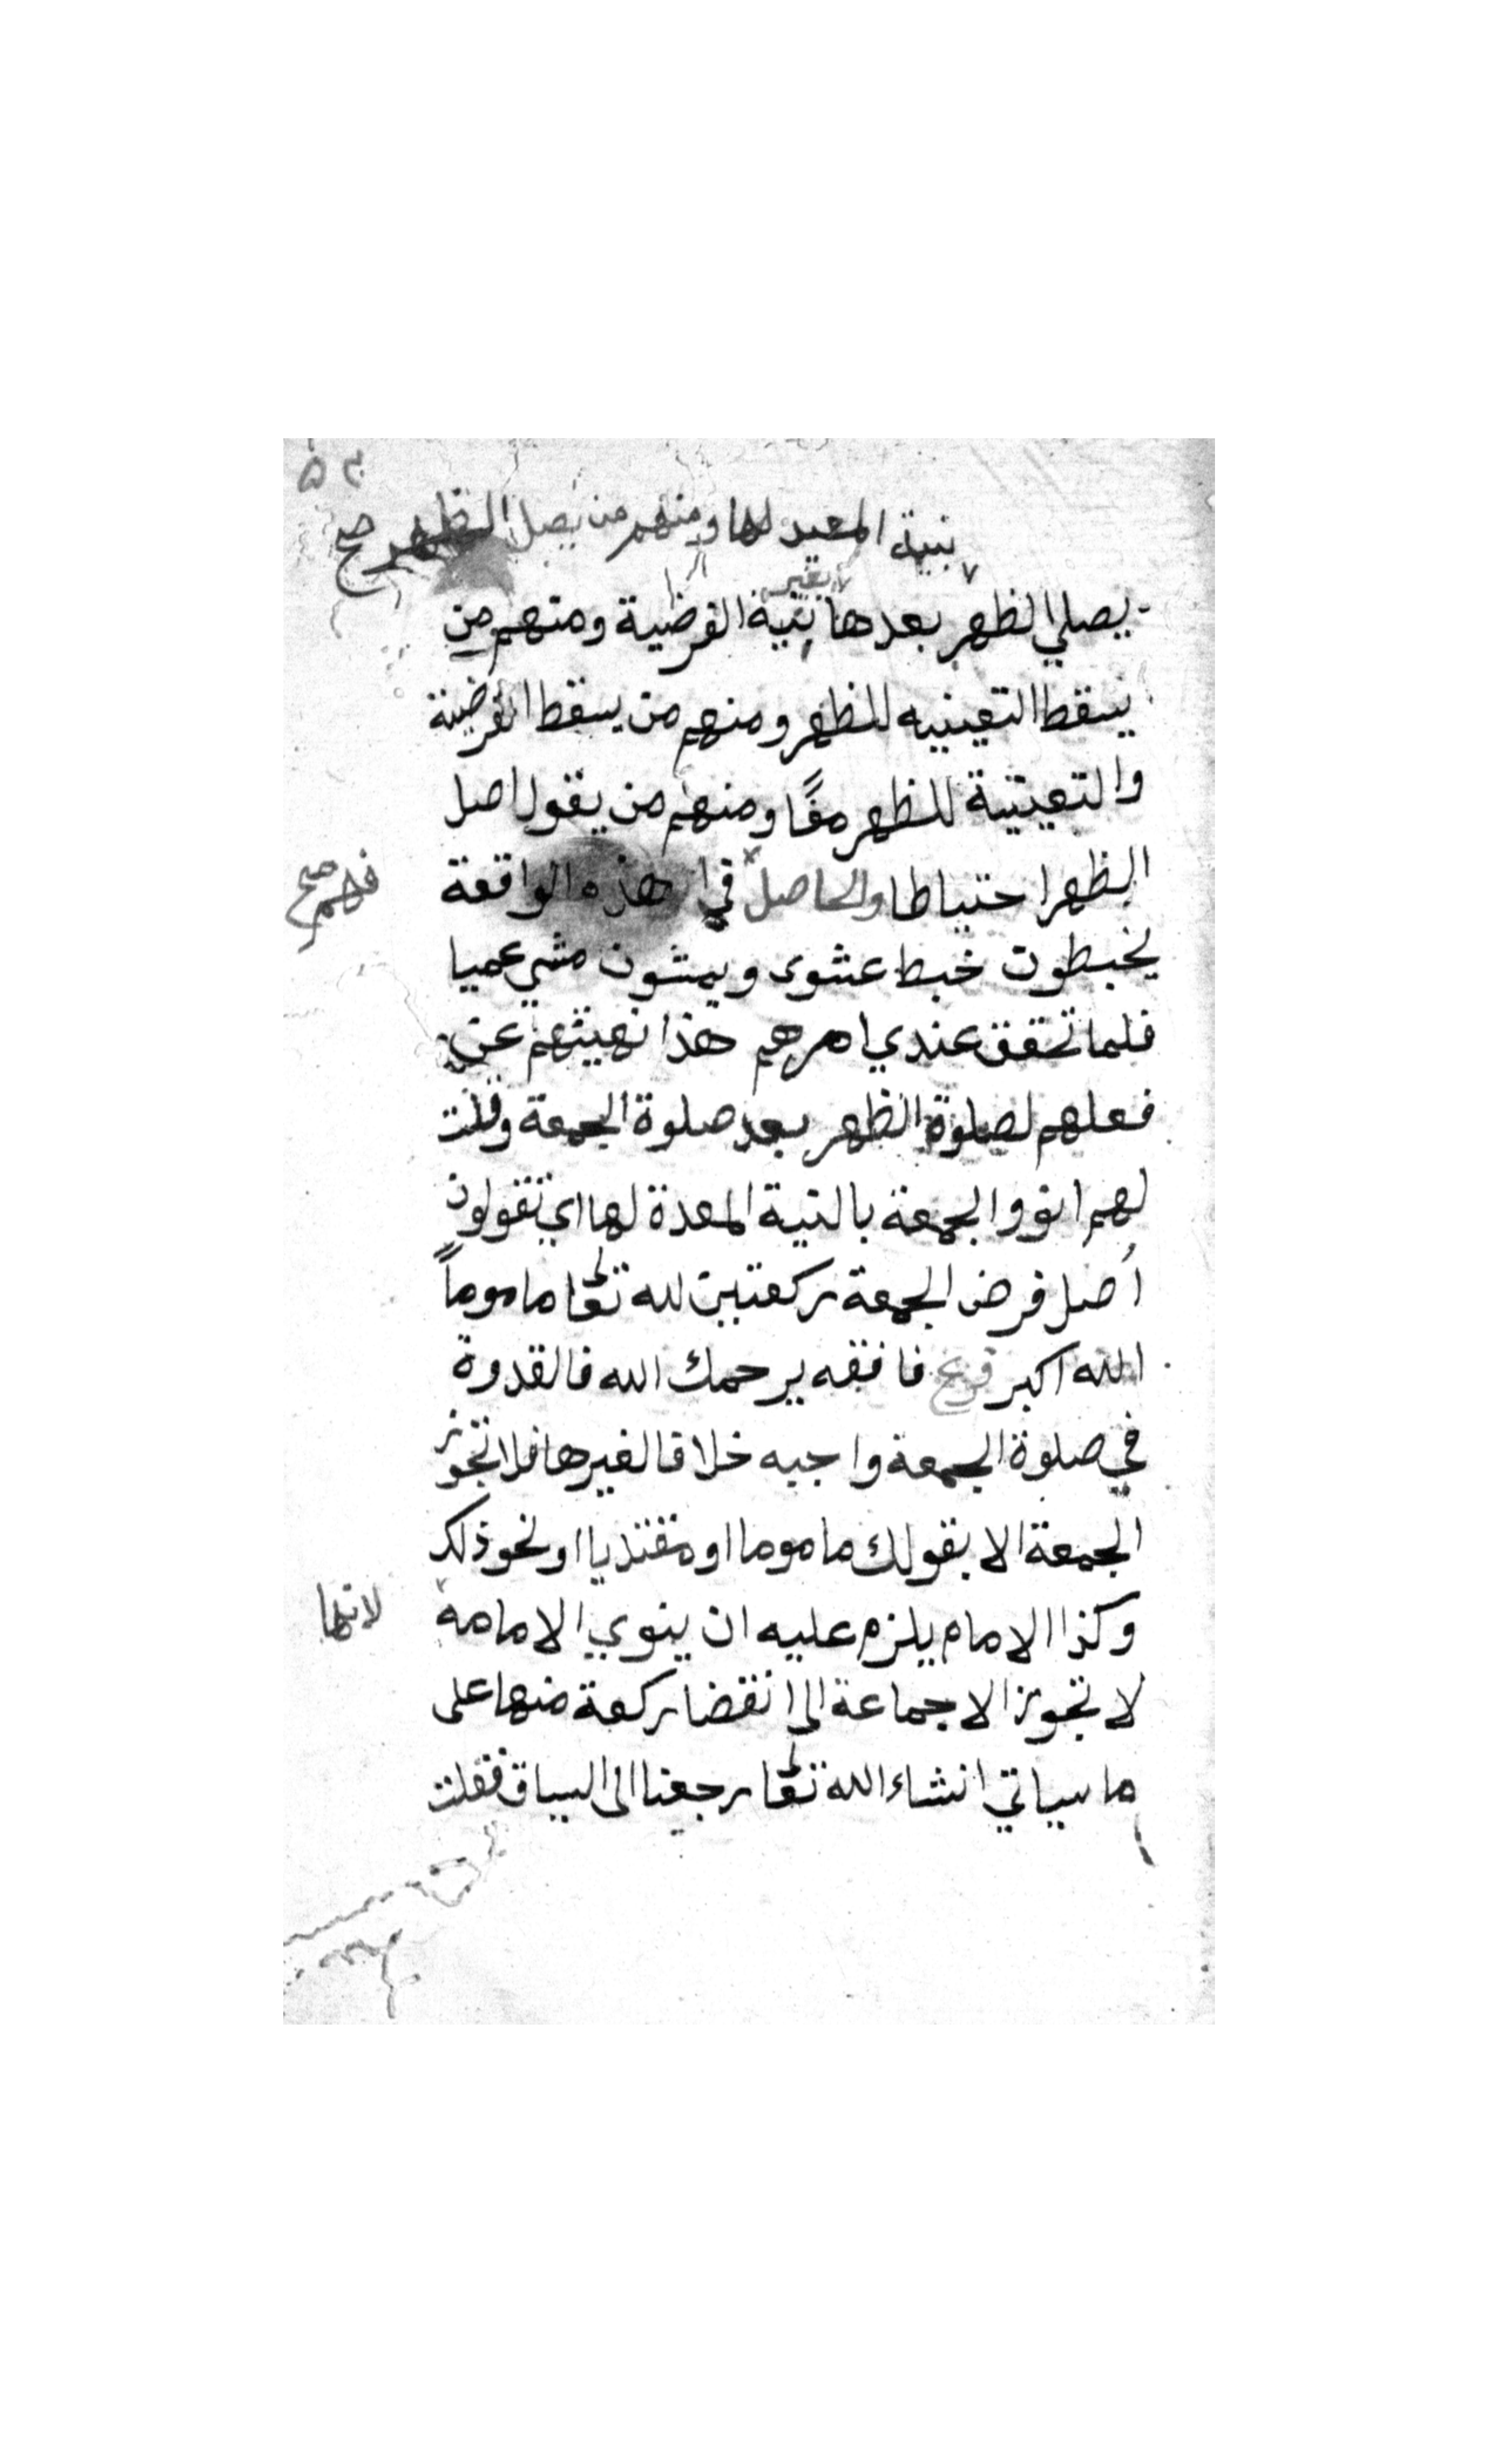 ٥٣
بنية المعيد لها ومنهم من يصل الظهر صح
يصلي الظهر بعدها بغير نية الفرضية ومنهم من
يسقط التعينيه للظهر ومنهم من يسقط الفرضية
والتعينية للظهر معًا ومنهم من يقول اصل
الظهر احتياطا والحاصل في هذه الواقعة
فهم صح
يخبطون خبط عشوى ويمشون مشي عميا
فلما تحقق عندي امرهم هذا نهيتهم عن
فعلهم لصلوة الظهر بعد صلوة الجمعة وقلت
لهم انووا الجمعة بالنية المعدة لها اي تقولون
أصل فرض الجمعة ركعتين لله تعالى ماموماً
الله اكبر فافقه يرحمك الله فالقدوة
في صلوة الجمعة واجبه خلافا لغيرها فلا تجوز
الجمعة الا بقولك ماموما او مقتديا او نحو ذلك
وكذا الامام يلزم عليه ان ينوي الامامة
لانها
لا تجوز الا جماعة الى انقضا ركعة منها على
ما سياتي انشاء الله تعالى رجعنا الى السياق فقلت